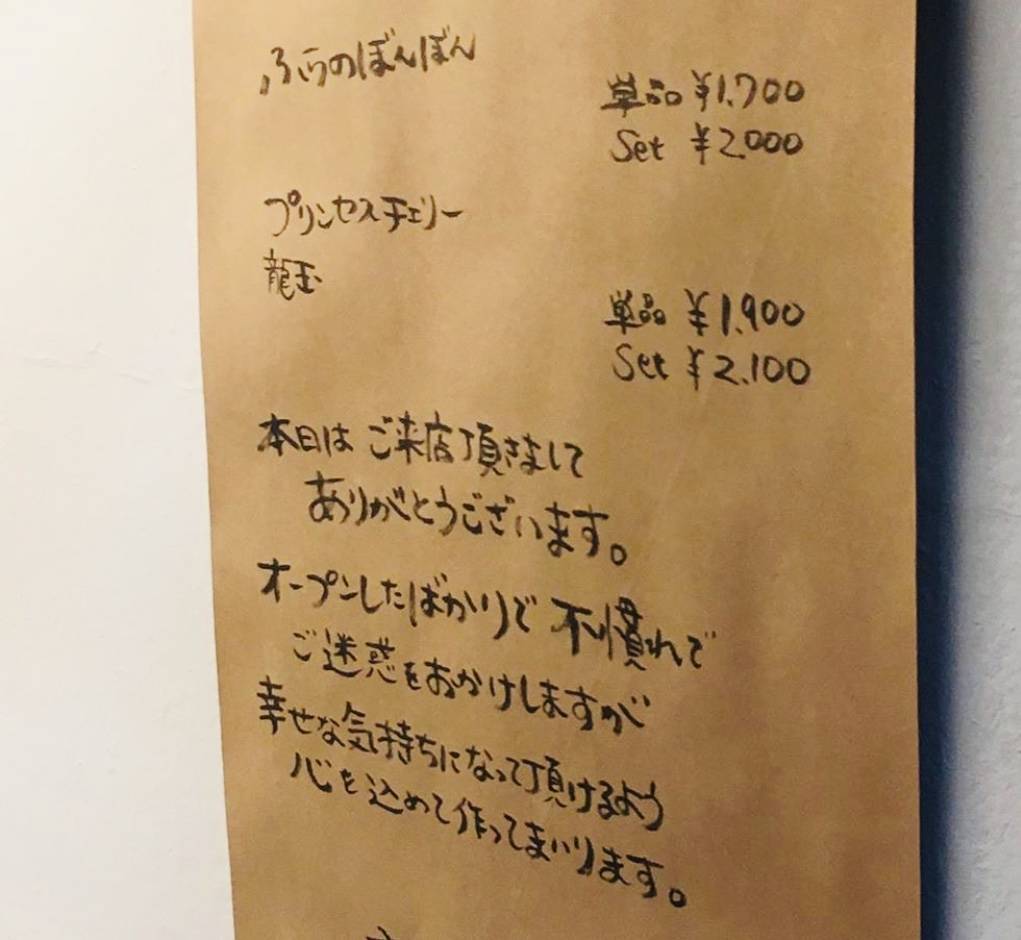 ふらのぼんぼん
単品 ¥1.700
Set ¥2.000
プリンセスチェリー
龍玉
単品 ¥1.900
Set ¥2.100
本日は ご来店頂きまして
ありがとうございます。
オープンしたばかりで 不慣れで
ご迷惑をおかけしますが
幸せな気持ちになって頂けるよう
心を込めて作ってまいります。